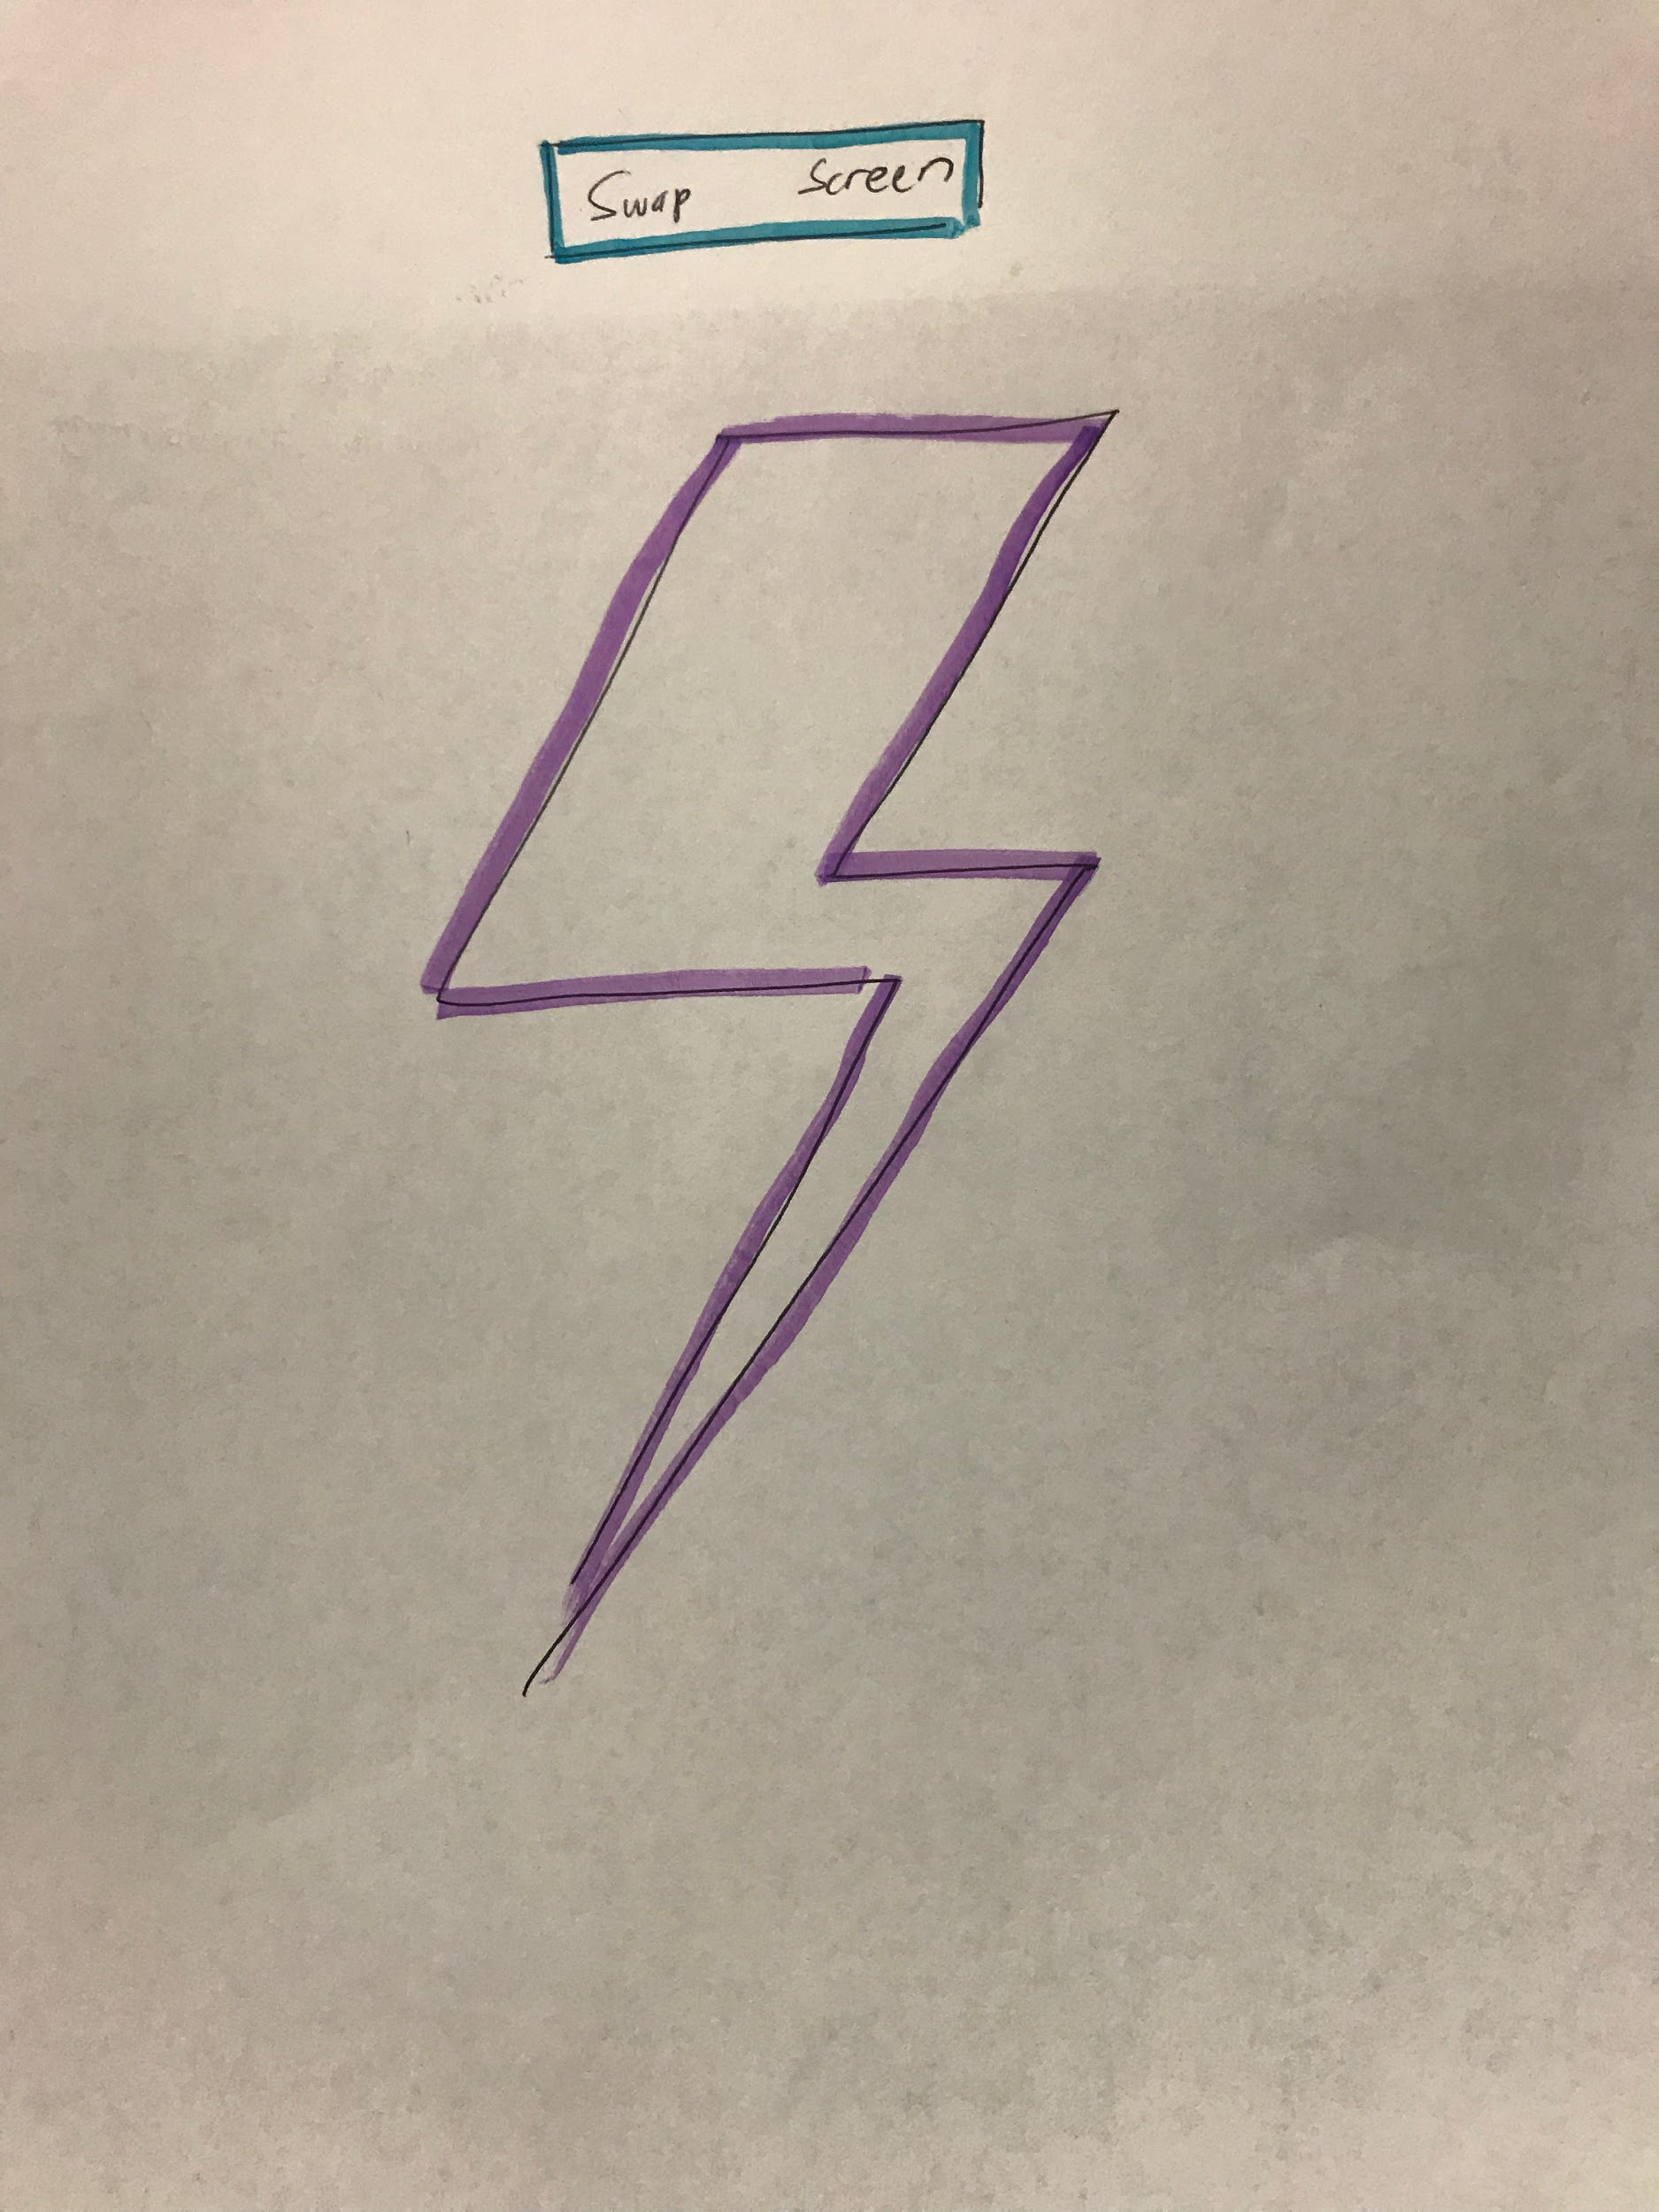 Swap Screen